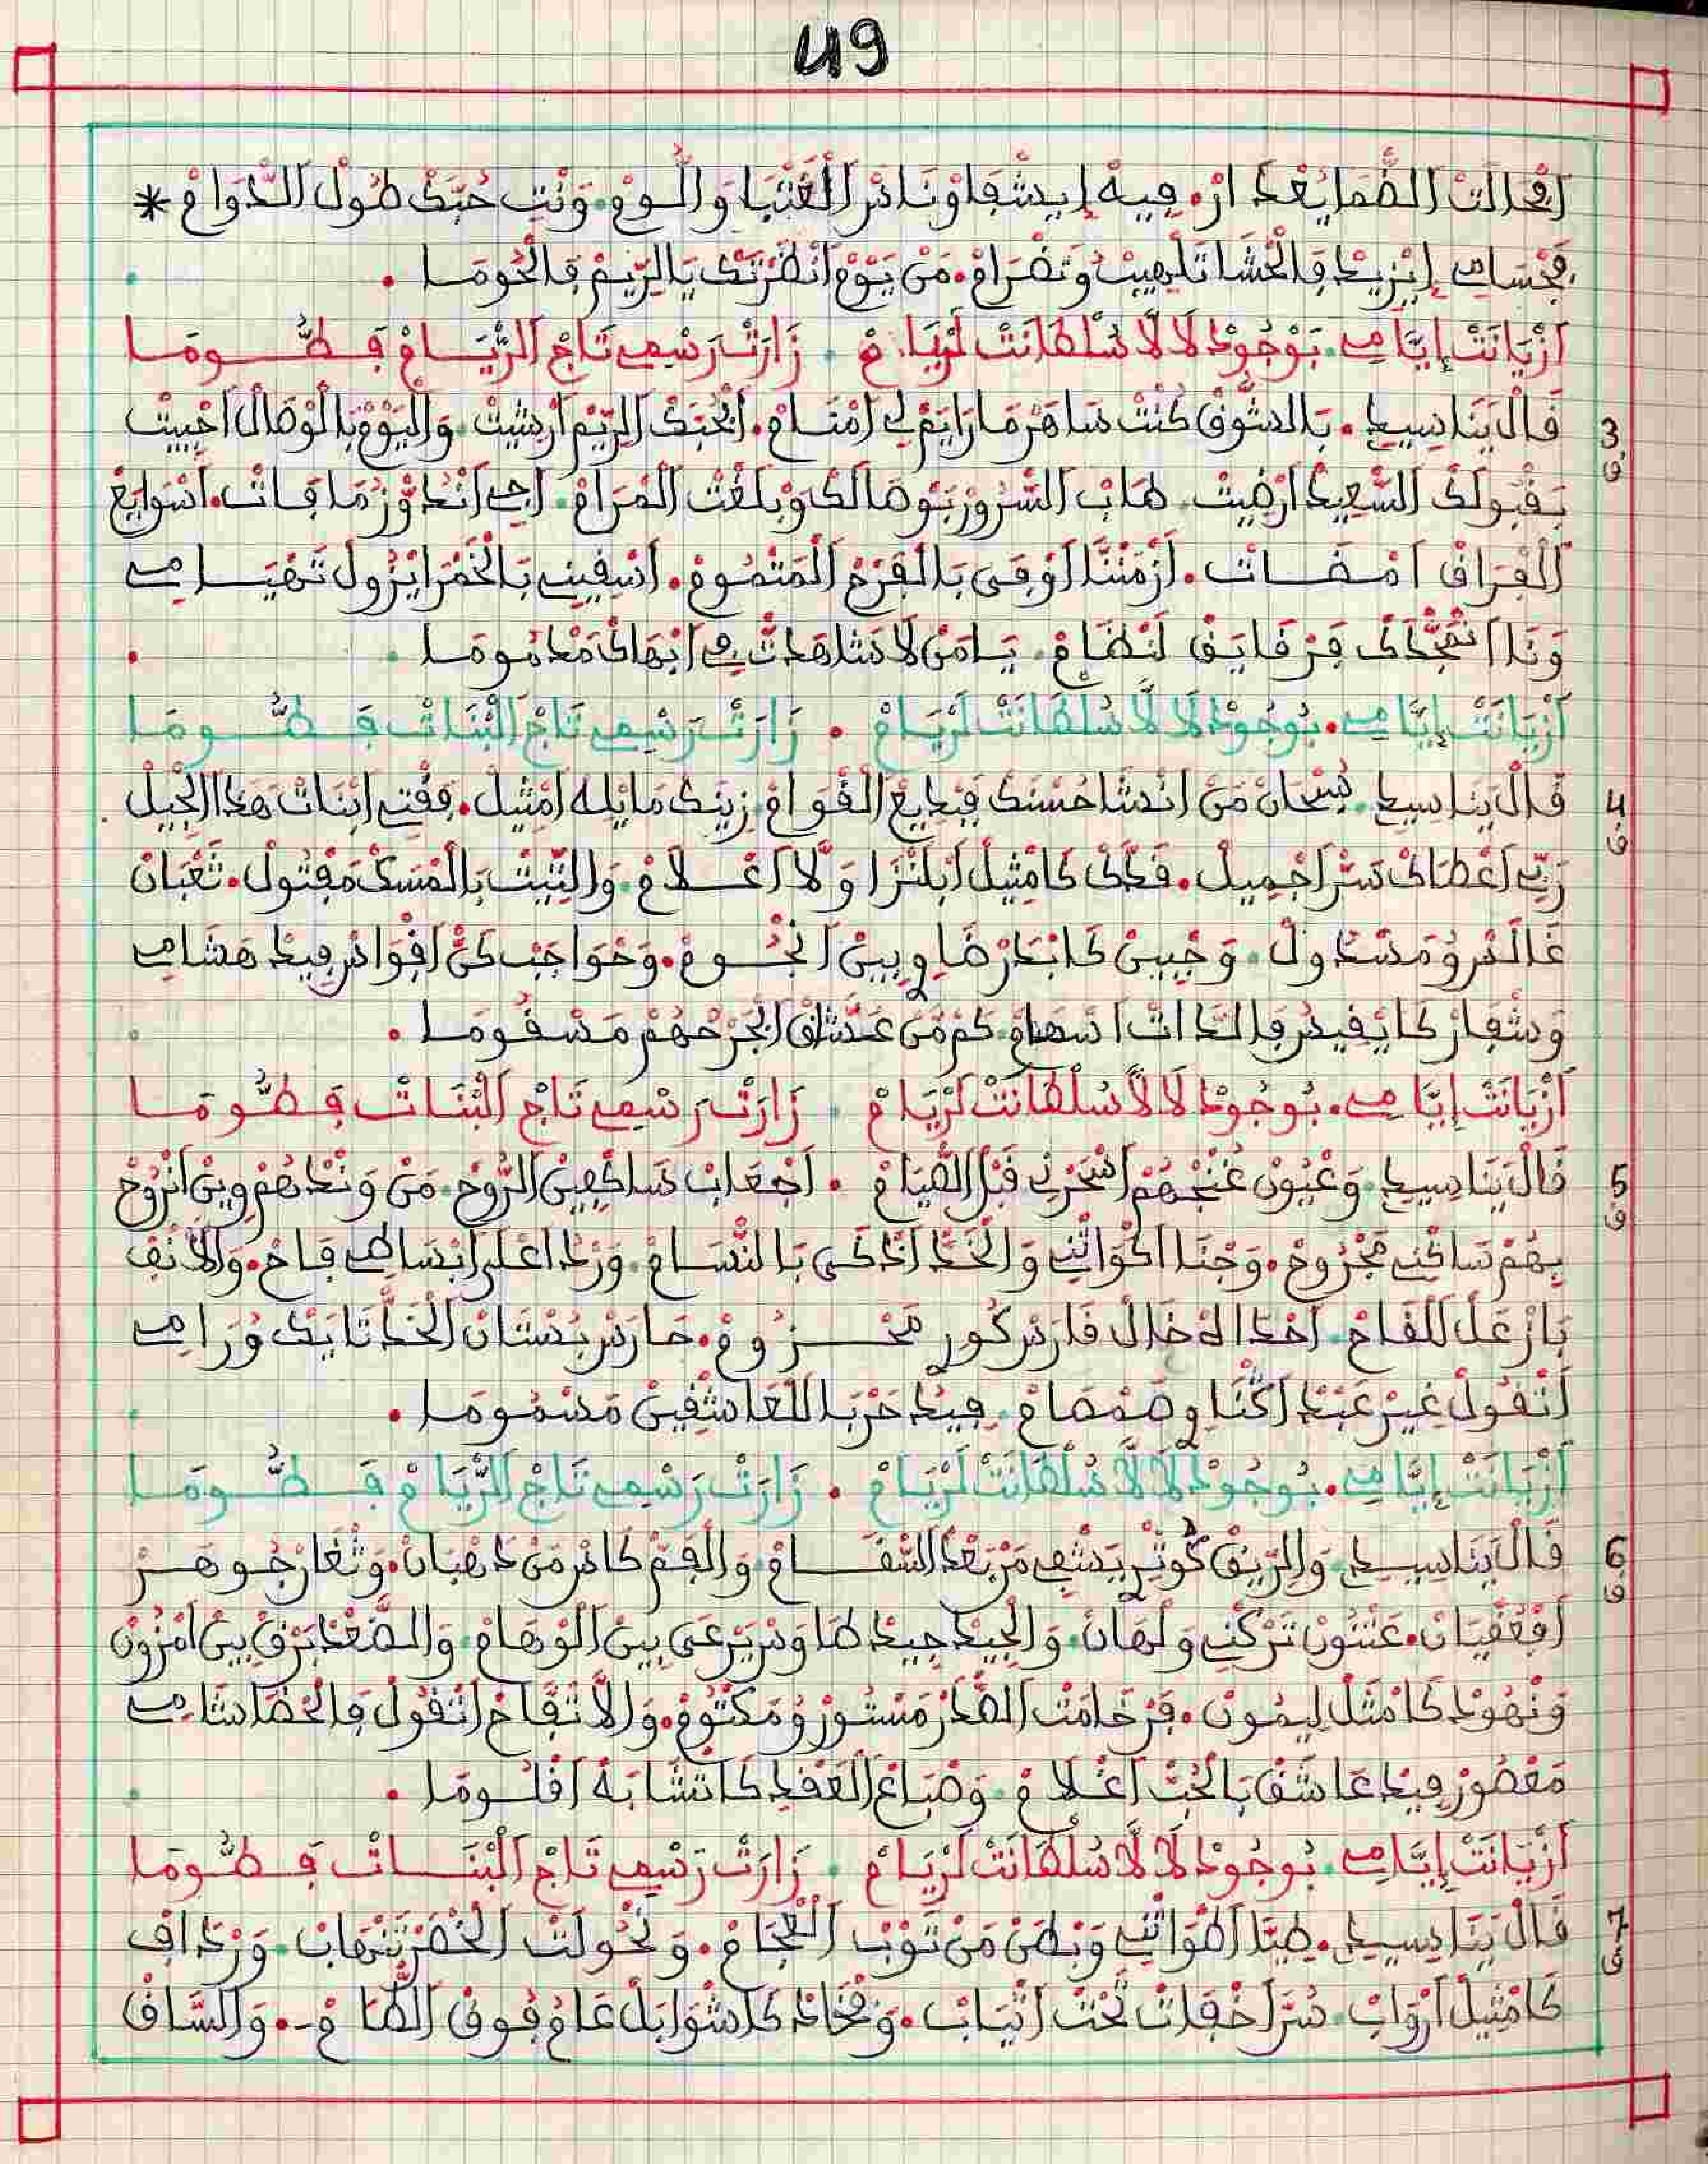 49
افحالت الظما يغدار. فيه إيشفاو ناس الغتبا واللوم. ونت حبك طول الدوام *
فجسامي إيزيد فالحشا تلهيب وتضرام. من يوم انظرتك يا الريم فالحوما.
ازيانت إيامي. بوجود لالا سلطانت لريام. زارت رسمي تاج الريام فطوما
3 ف قال ينا سيدي. بالشوق كنت ساهر ما رايم لي امنام. ابحبك الريم ارشيت. واليوم بالوصال احييت
بقبولك السعيد ارضيت. هاب السرور بوصالك وبلغت المرام. اجي انداوز ما فات. اسوايع
الفراق امضات. ازمننا اوفى بالفرح المتموم. اسقيني بالخمر ايزول تهيامي
ونا انمجدك فرقايق لنضام. يا من لا شاهدت في ابهاك مدموما.
ازيانت إيامي. بوجود لالا سلطانت لريام. زارت رسمي تاج البنات فطوما
4 ف قال ينا سيدي. سبحان من انشا حسنك فبديع القوام. زينك ما يله امثيل. فقتي ابنات هدا الجيل
ربي اعطاك سر اجميل. قدك كامثيل ابلنزا ولا اعلام. والتيت بالمسك مفتول. ثعبان
غالس ومسدول. وجبين كابدر ضاوي بين انجوم. وحواجب كن اقواس فيد هشامي
وشفار كايفيس فالدات اسهام. كم من عشاق ابجرحهم مسقوما.
ازيانت إيامي. بوجود لالا سلطانت لريام. زارت رسمي تاج البنات فطوما
5 ف قال ينا سيدي. وعيون غنجهم اسحرني قبل الصيام. اجعاب ساكهين الروح. من وندهم وين انروح
بهم ساقني مجروح. وجنا اكواتني والخد اذكى بالنسام. ورد اعلى ابساطي فاح. والانف
باز عل للفاح. احدا له خال فارس كور محزوم. حارس بستان الخد تايك ورامي
انقول غير عبد اكنا وصمصام. فيد حربا للعاشقين مسموما.
ازيانت إيامي. بوجود لالا سلطانت لريام. زارت رسمي تاج الريام فطوما
6 ف قال ينا سيدي. والريق كوثر يشفي مر بعد السقام. والفم كاس من دهبان. وثغار جوهر
افعقيان. عتنون تركني ولهان. والجيد جيد طاوس يرعى بين الوهام. والصعد برق بين امزون
ونهود كا مثل ليمون. فرخامت الصدر مستور ومكتوم. والا تفاح انقول فالخضا شامي
معصور فيد عاشق بالحب اغلام. وصباع العقد كاتشابه اقلوما.
ازيانت إيامي. بوجود لالا سلطانت لريام. زارت رسمي تاج البنات فطوما
7 ف قال ينا سيدي. طيا اطواتني وبطن من توب العجام. ونحولت الخصر تنهاب. وردافي
كامثيل ارواب. سر اخفات تحت اثياب. وفخاد كاشوابل عام فوق الطام. والساق